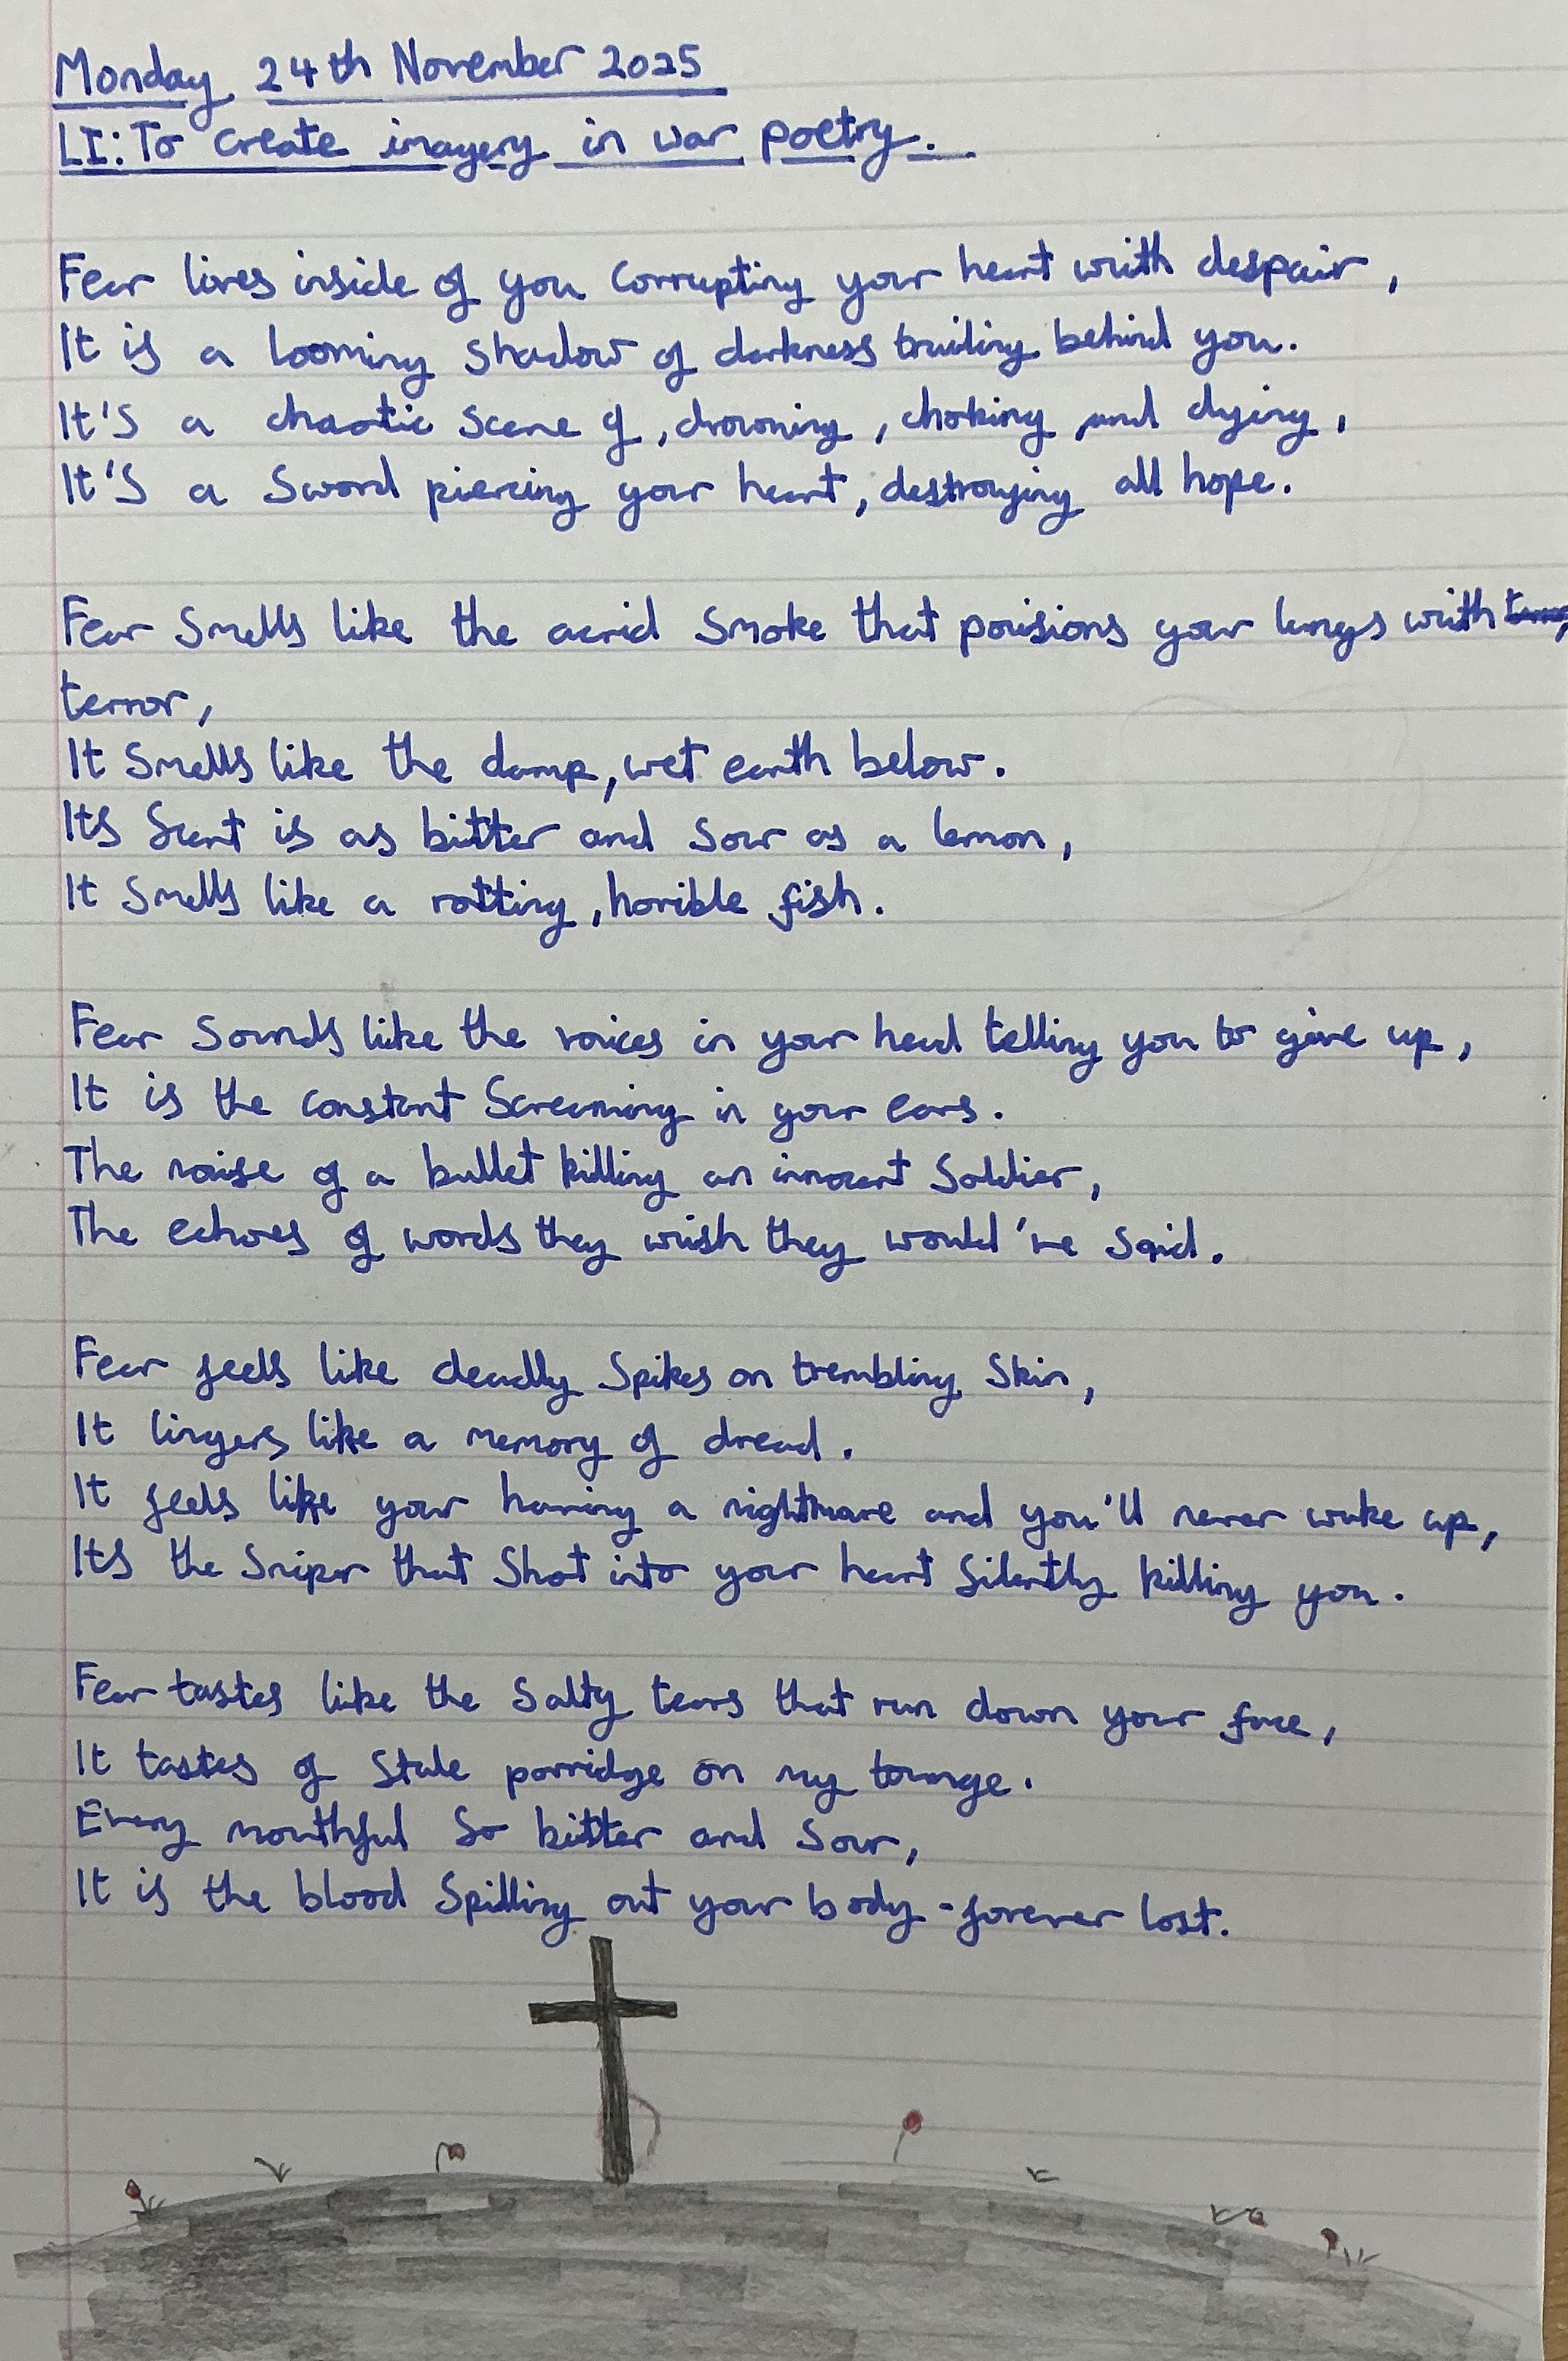 Monday 24th November 2025
LI: To create imagery in war poetry.
Fear lives inside of you corrupting your heart with despair,
It is a looming shadow of darkness trailing behind you.
It's a chaotic scene of, drowning, choking, and dying,
It's a sword piercing your heart, destroying all hope.
Fear smells like the acrid smoke that poisions your lungs with
terror,
It smells like the damp, wet earth below.
Its scent is as bitter and sour as a lemon,
It smells like a rotting, horible fish.
Fear sounds like the voices in your head telling you to give up,
It is the constant screaming in your ears.
The noise of a bullet killing an innocent soldier,
The echoes of words they wish they would've said.
Fear feels like deadly spikes on trembling skin,
It lingers like a memory of dread.
It feels like your having a nightmare and you'll never wake up,
Its the sniper that shot into your heart silently killing you.
Fear tastes like the salty tears that run down your face,
It tastes of stale porridge on my tounge.
Every mouthful so bitter and sour,
It is the blood spilling out your body - forever lost.